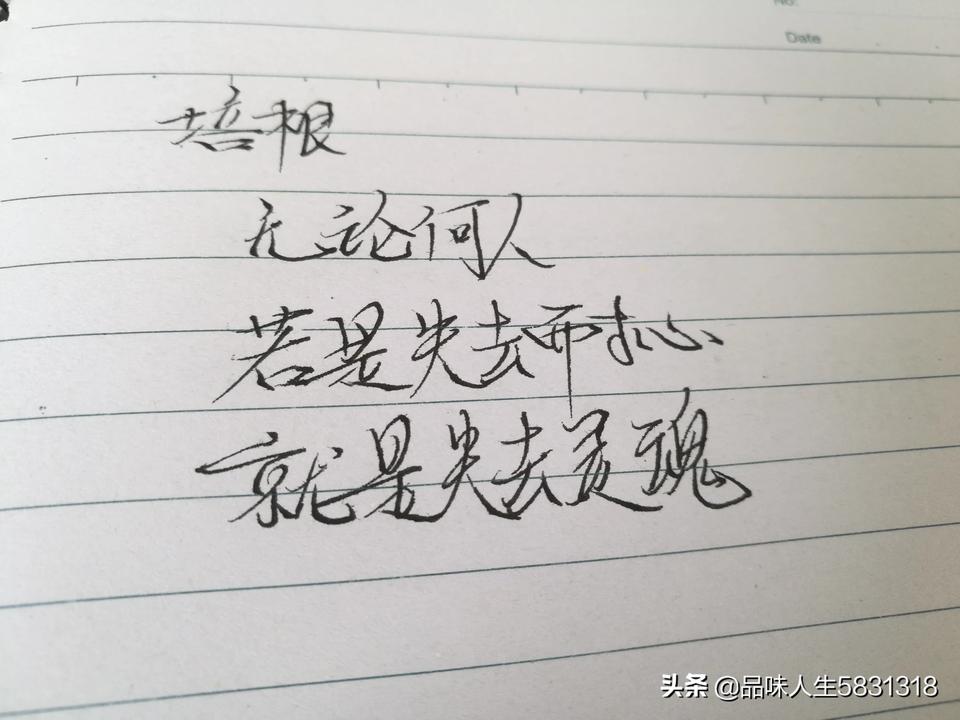 No:
Date
培根
无论何人
若是失去耐心
就是失去灵魂
头条 @品味人生5831318